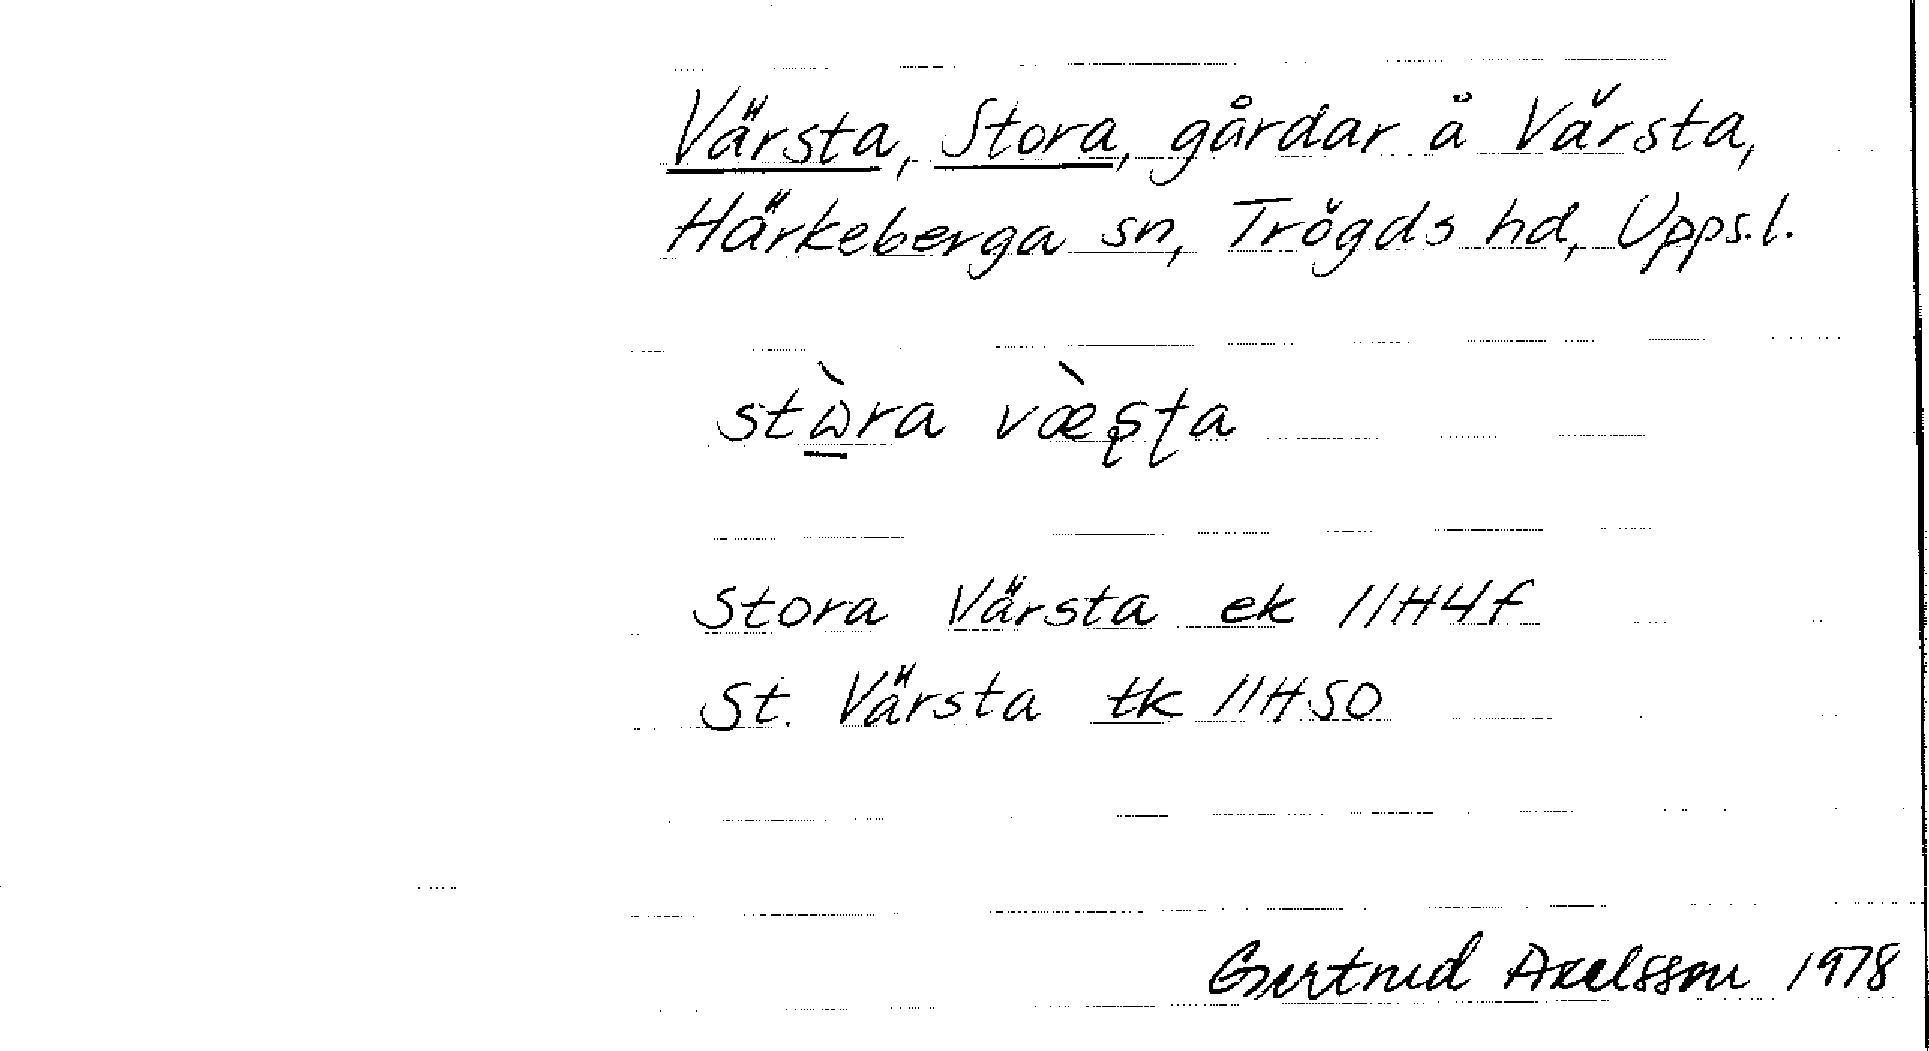 Värsta, Stora, gårdar å Värsta,
Härkeberga sn, Trögds hd, Uppsl.
stɷ̀ra væ̀ʂʈa
Stora Värsta ek 11H4f
St. Värsta tk 11HSO
Gertrud Axelsson 1978